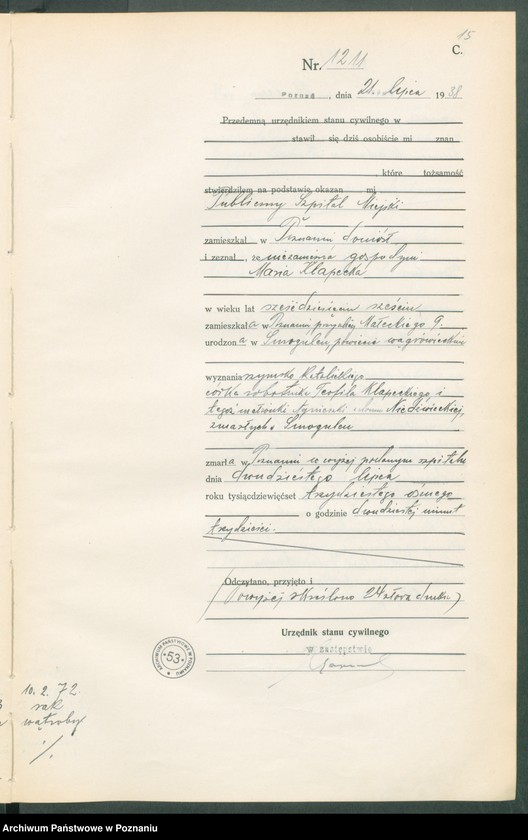 15
C.
Nr. 1211
Poznań, dnia 21. lipca 1938
Przedemną urzędnikiem stanu cywilnego w
stawił się dziś osobiście mi znan
, które tożsamość
stwierdziłem na podstawie okazan mi
Publiczny Szpital Miejski
zamieszkał w Poznaniu doniósł
i zeznał, że niezamężna gospodyni
Maria Kłapecka
w wieku lat sześćdziesięciu sześciu
zamieszkała w Poznaniu, przy ulicy Małeckiego 9.
urodzona w Smogulcu, powiecie wągrowieckim
wyznania rzymsko katolickiego
córka robotnika Teofila Kłapeckiego i
tegoż małżonki Agnieszki z domu
zmarłych w Smogulcu
zmarła w Poznaniu w wyżej podanym szpitalu
dnia dwudziestego lipca
roku tysiącdziewięćset trzydziestego ósmego
o godzinie dwudziestej minut
trzydzieści.
Odczytano, przyjęto i
(Powyżej skreślono 24 słowa druku)
Urzędnik stanu cywilnego
w zastępstwie
ARCHIWUM PAŃSTWOWE W POZNANIU
53
10. 2. 72.
rak
wątroby
Archiwum Państwowe w Poznaniu